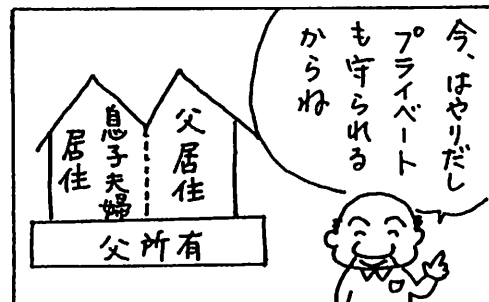 今、はやりだし
プライベート
も守られる
からね
父居住
息子夫婦
居住
父所有